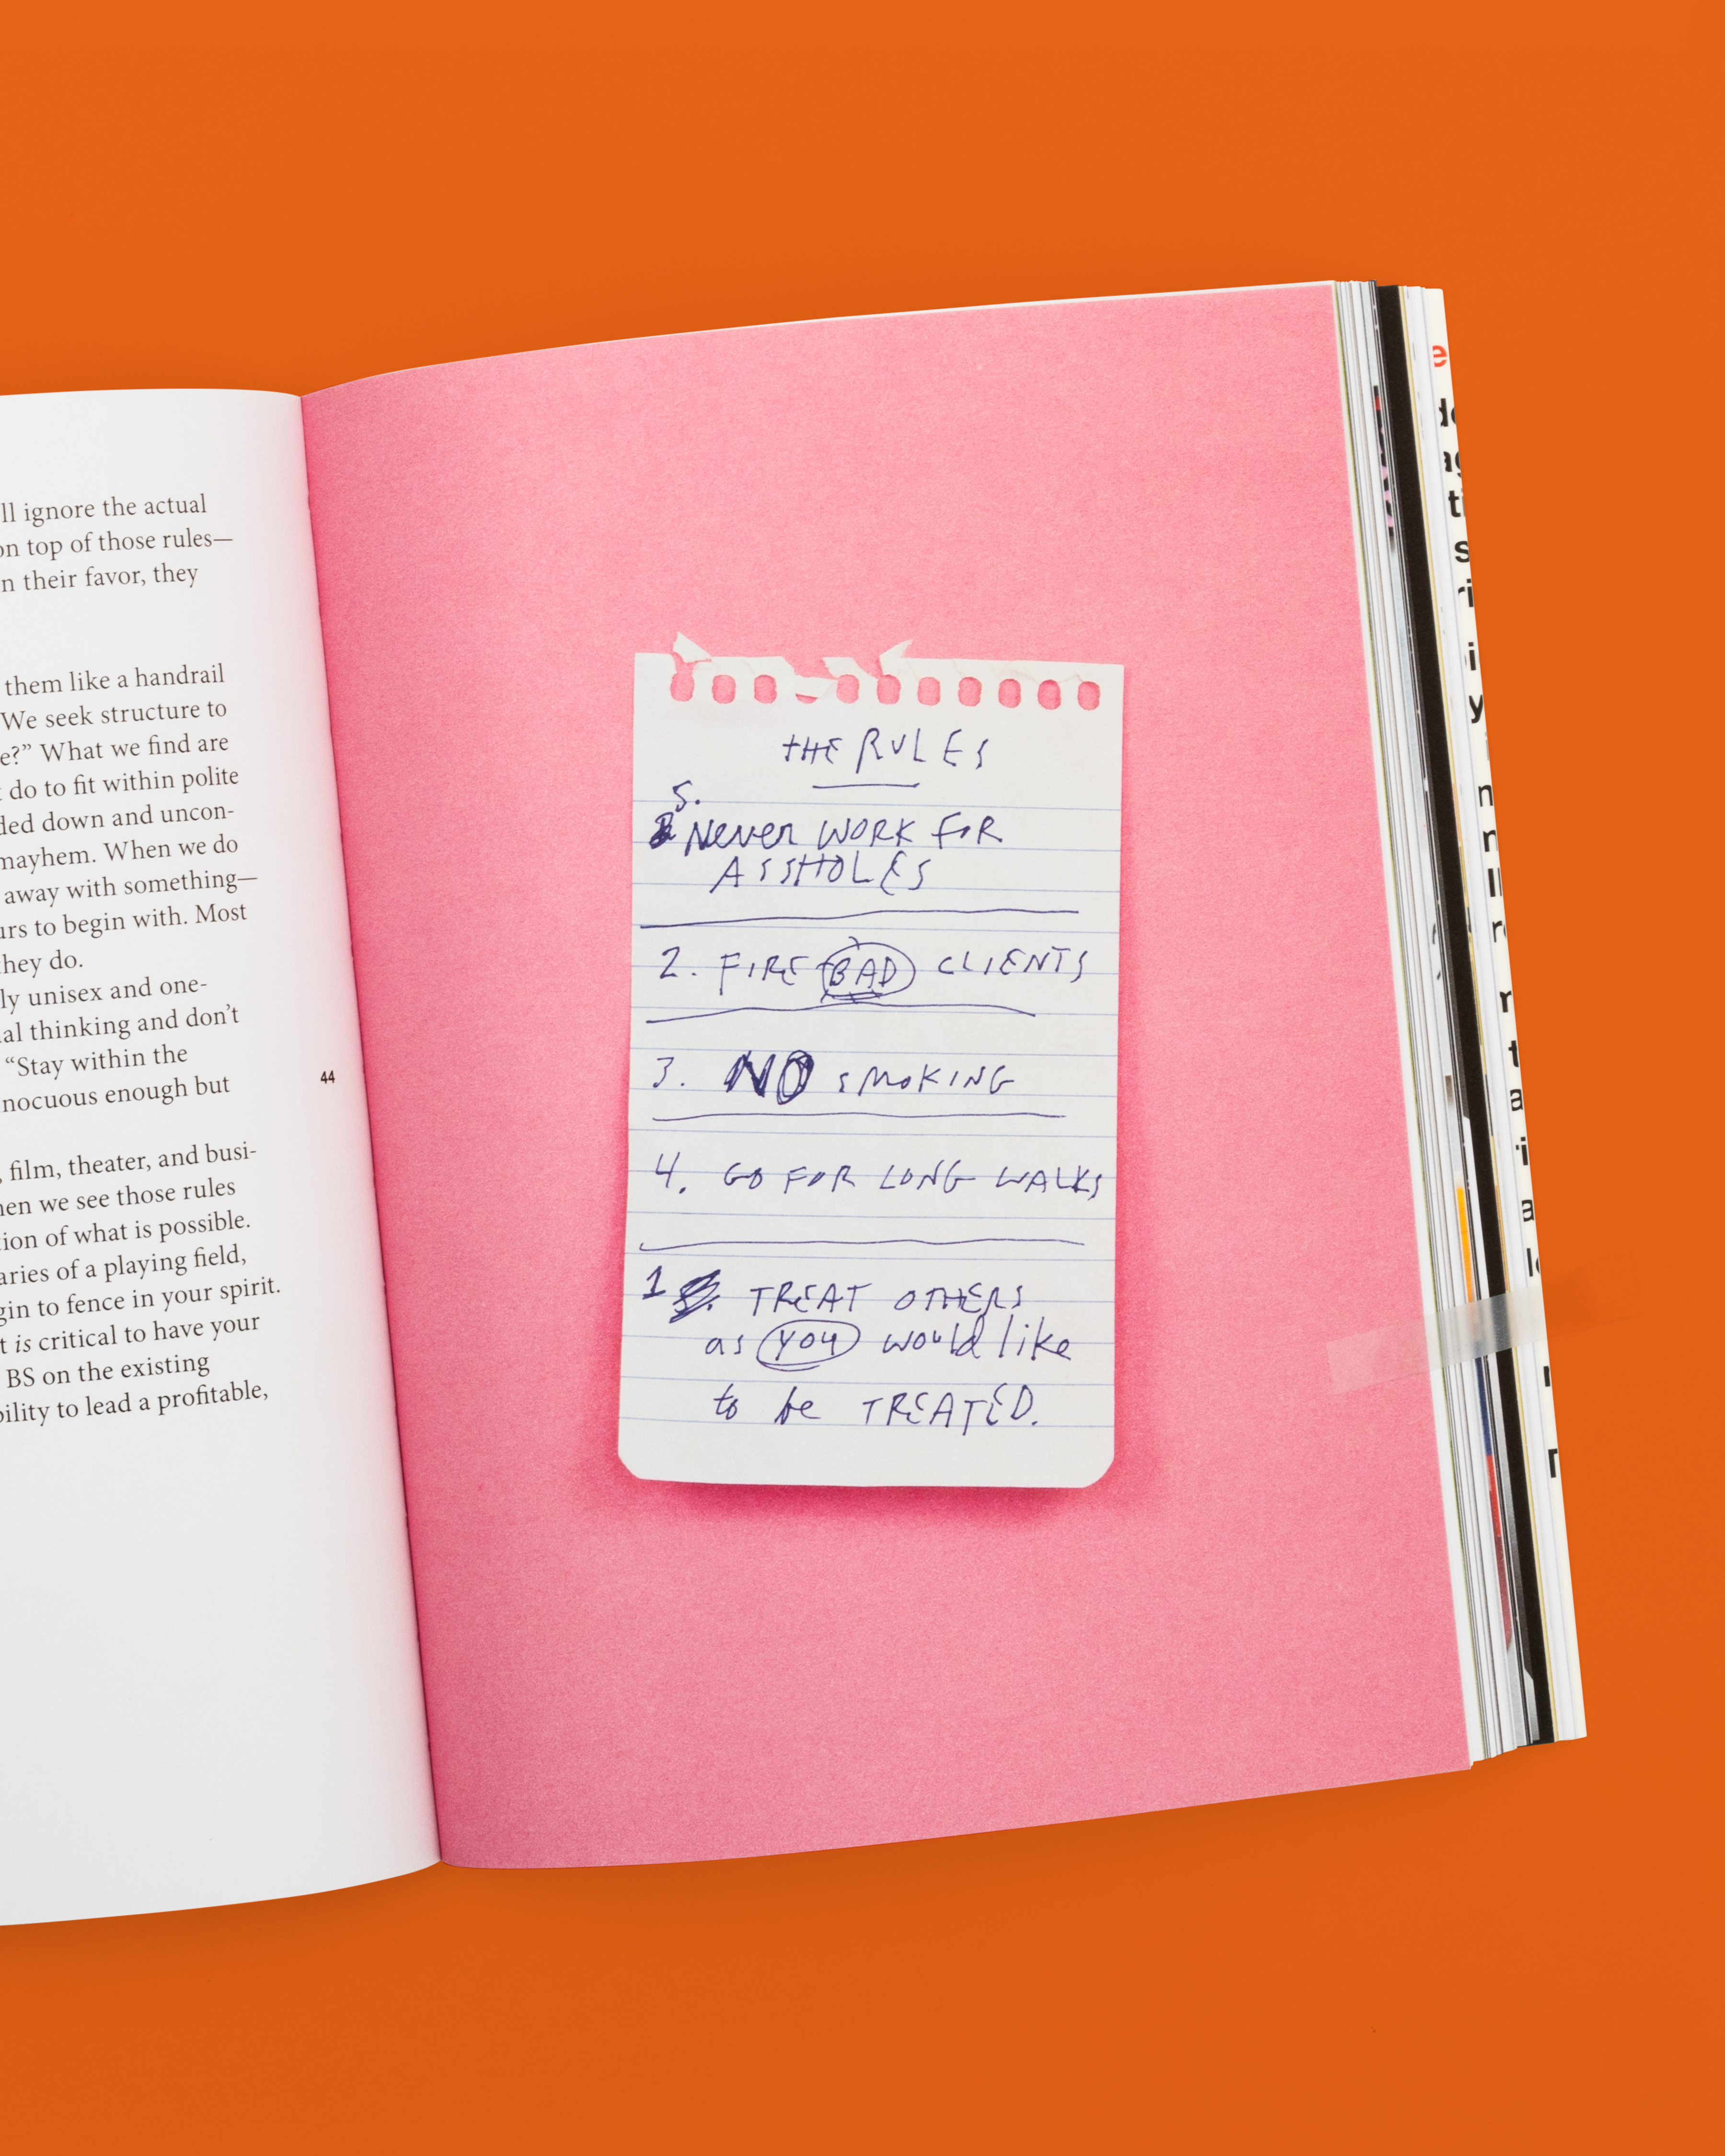 ll ignore the actual
on top of those rules—
n their favor, they
them like a handrail
We seek structure to
e?” What we find are
do to fit within polite
ded down and uncon-
mayhem. When we do
away with something—
urs to begin with. Most
they do.
ly unisex and one-
al thinking and don’t
“Stay within the
nocuous enough but
, film, theater, and busi-
hen we see those rules
tion of what is possible.
aries of a playing field,
gin to fence in your spirit.
t is critical to have your
BS on the existing
bility to lead a profitable,
44
THE RULES
5.
Never WORK FOR
ASSHOLES
2. FIRE BAD CLIENTS
3. NO SMOKING
4. GO FOR LONG WALKS
1 TREAT OTHERS
as you would like
to be TREATED.